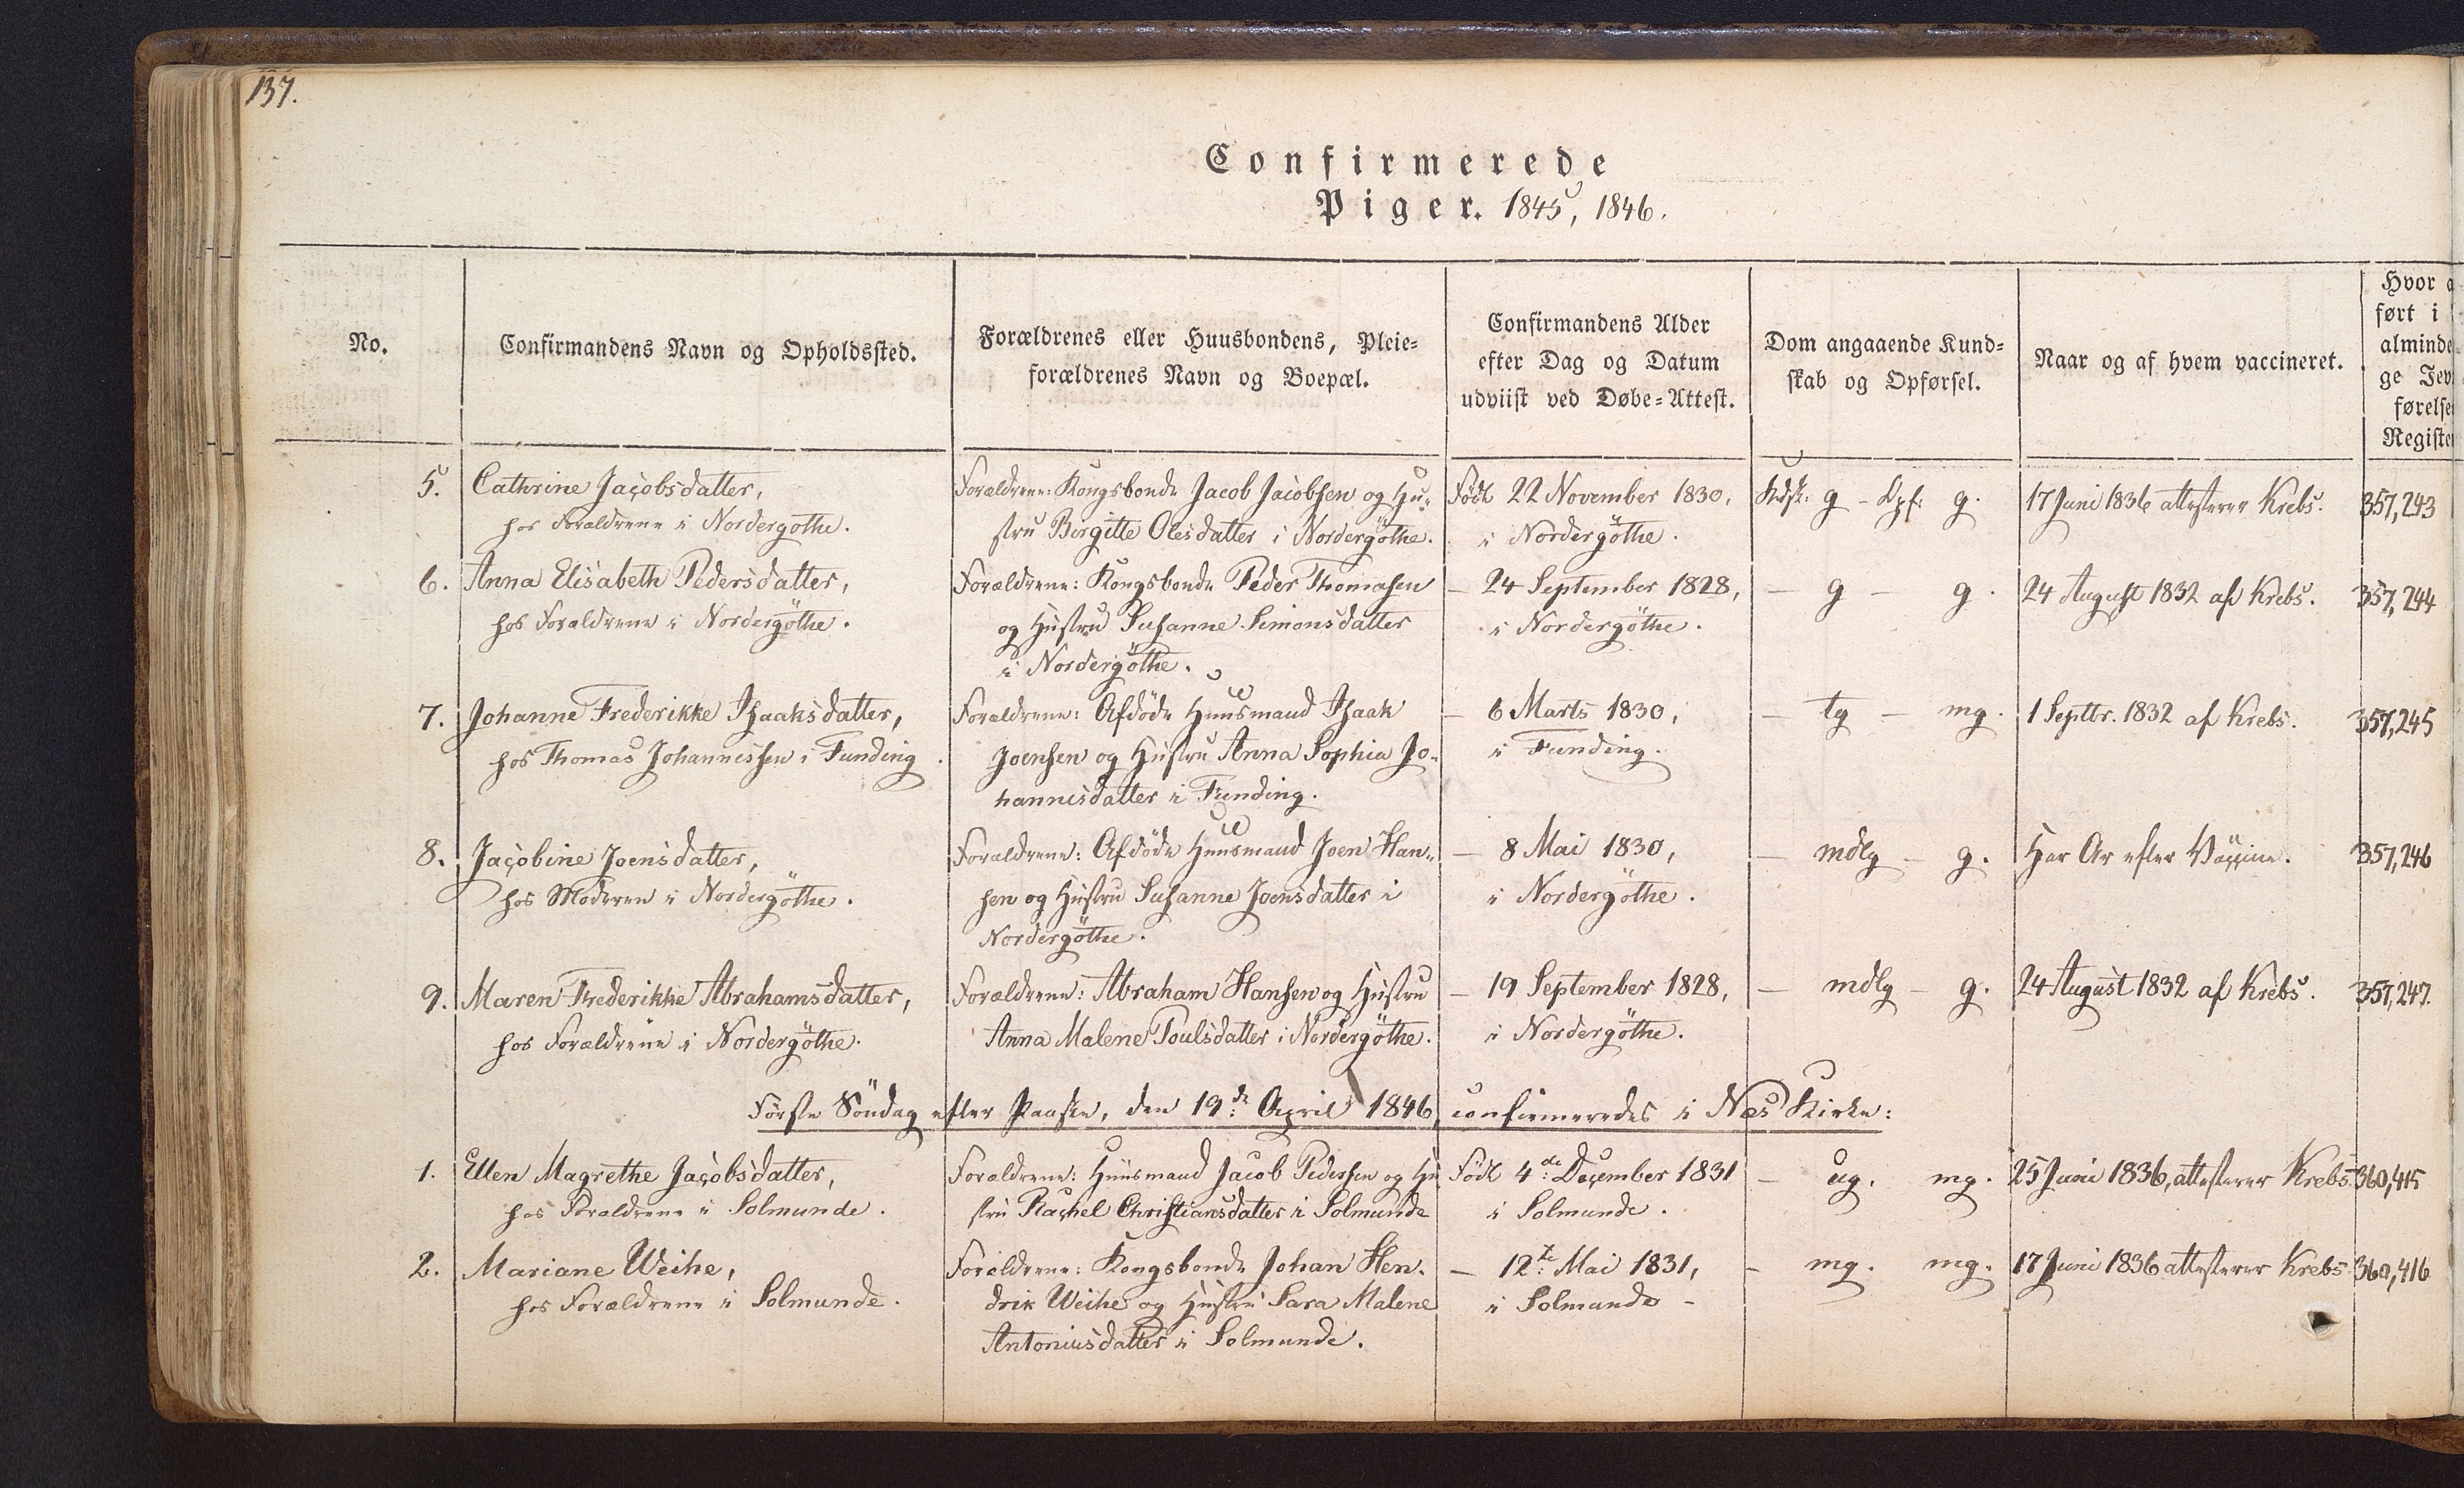 137.
Confirmerede
Piger. 1845, 1846.
No.
Confirmandens Navn og Opholdssted.
Forældrenes eller Huusbondens, Pleie=
forældrenes Navn og Boepæl.
Confirmandens Alder
efter Dag og Datum
udviist ved Døbe=Attest.
Dom angaaende Kund=
skab og Opførsel.
Naar og af hvem vaccineret.
Hvor
ført i
alminde
ge Jev
førelse
Registe
5. Cathrine Jacobsdatter,
hos Forældrene i Nordergöthe.
Forældrene: Kongsbonde Jacob Jacobsen og Hu-
stru Birgitte Olesdatter i Nordergöthe.
Födt 22 November 1830,
i Nordergöthe.
Kdsk: g - Opf: g.
17 Juni 1836 attesterer Krebs.
357,243
6. Anna Elisabeth Pedersdatter,
hos Forældrene i Nordergöthe.
Forældrene: Kongsbonde Peder Thomasen
og Hustru Susanne Simonsdatter
i Nordergöthe.
- 24 September 1828,
i Nordergöthe.
- g - g.
24 August 1832 af Krebs.
357,244
7. Johanne Frederikke Isaaksdatter,
hos Thomas Johannessen i Funding.
Forældrene: Afdöde Huusmand Isaak
Joensen og Hustru Anna Sophia Jo-
hannesdatter i Funding.
- 6 Marts 1830,
i Funding.
- tg - mg.
1 Septbr. 1832 af Krebs.
357,245
8. Jacobine Joensdatter,
hos Moderen i Nordergöthe.
Forældrene: Afdöde Huusmand Joen Han-
sen og Hustru Susanne Joensdatter i
Nordergöthe.
- 8 Mai 1830,
i Nordergöthe.
- mdlg - g.
Har Ar efter Vaccine.
357,246
9. Maren Frederikke Abrahamsdatter,
hos Forældrene i Nordergöthe.
Forældrene: Abraham Hansen og Hustru
Anna Malene Poulsdatter i Nordergöthe.
- 19 September 1828,
i Nordergöthe.
- mdlg - g.
24 August 1832 af Krebs.
357,247.
Förste Söndag efter Paaske, den 19de April 1846, confirmeredes i Næs Kirke:
1. Ellen Magrethe Jacobsdatter,
hos Forældrene i Solmunde.
Forældrene: Huusmand Jacob Pedersen og Hu
stru Rachel Christiansdatter i Solmunde
Födt 4de December 1831
i Solmunde.
- ug. mg.
25 Juni 1836, attesterer Krebs
360,415
2. Mariane Weihe,
hos Forældrene i Solmunde.
Forældrene: Kongsbonde Johan Hen-
drik Weihe og Hustru Sara Malene
Antoniusdatter i Solmunde.
- 12te Mai 1831,
i Solmunde -
- mg. mg.
17 Juni 1836 attesterer Krebs
360,416